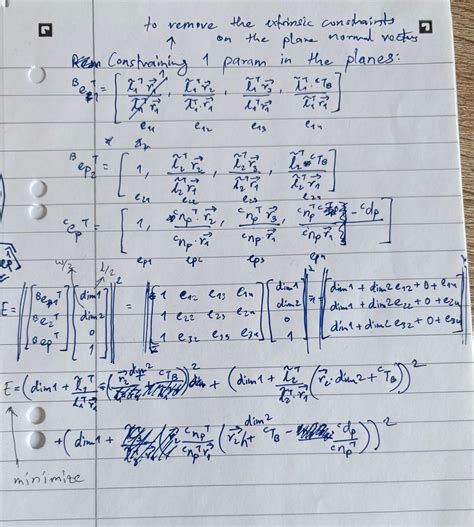 to remove the extrinsic constraints
on the plane normal vectors
Constraining 1 param in the planes:
ᴮe_p1ᵀ = [ λ̃₁ᵀr⃗₁ / λ̃₁ᵀr⃗₁ 1, λ̃₁ᵀr⃗₂ / λ̃₁ᵀr⃗₁, λ̃₁ᵀr⃗₃ / λ̃₁ᵀr⃗₁, λ̃₁ᵀ·ᶜT_B / λ̃₁ᵀr⃗₁ ]
e₁₁ e₁₂ e₁₃ e₁₄
ᴮe_p2ᵀ = [ 1, λ̃₂ᵀr⃗₂ / λ̃₂ᵀr⃗₁, λ̃₂ᵀr⃗₃ / λ̃₂ᵀr⃗₁, λ̃₂ᵀ ᶜT_B / λ̃₂ᵀr⃗₁ ]
e₂₁ e₂₂ e₂₃ e₂₄
ᶜe_pᵀ = [ 1, ᶜn_pᵀr⃗₂ / ᶜn_pᵀr⃗₁, ᶜn_pᵀr⃗₃ / ᶜn_pᵀr⃗₁, ᶜn_pᵀ - ᶜd_p / ᶜn_pᵀr⃗₁ ]
e_p1 e_p2 e_p3 e_p4
w/2 L/2
E = ‖ [ ᴮe_p1ᵀ ; ᴮe_2ᵀ ; ᴮe_pᵀ ] [ dim1 ; dim2 ; 0 ; 1 ] ‖² = ‖ [ 1 e₁₂ e₁₃ e₁₄ ; 1 e₂₂ e₂₃ e₂₄ ; 1 e₃₂ e₃₃ e₃₄ ] [ dim1 ; dim2 ; 0 ; 1 ] ‖² = ‖ dim1 + dim2 e₁₂ + 0 + e₁₄ ; dim1 + dim2 e₂₂ + 0 + e₂₄ ; dim1 + dim2 e₃₂ + 0 + e₃₄ ‖²
E = (dim1 + λ̃₁ᵀ / λ̃₁ᵀr⃗₁ (r⃗₂ dim2 ᶜT_B))² + (dim1 + λ̃₂ᵀ / λ̃₂ᵀr⃗₁ (r⃗₂·dim2 + ᶜT_B))²
+ (dim1 + ᶜn_pᵀ / ᶜn_pᵀr⃗₁ (r⃗₂ dim2 + ᶜT_B - ᶜd_p / ᶜn_pᵀ))²
minimize